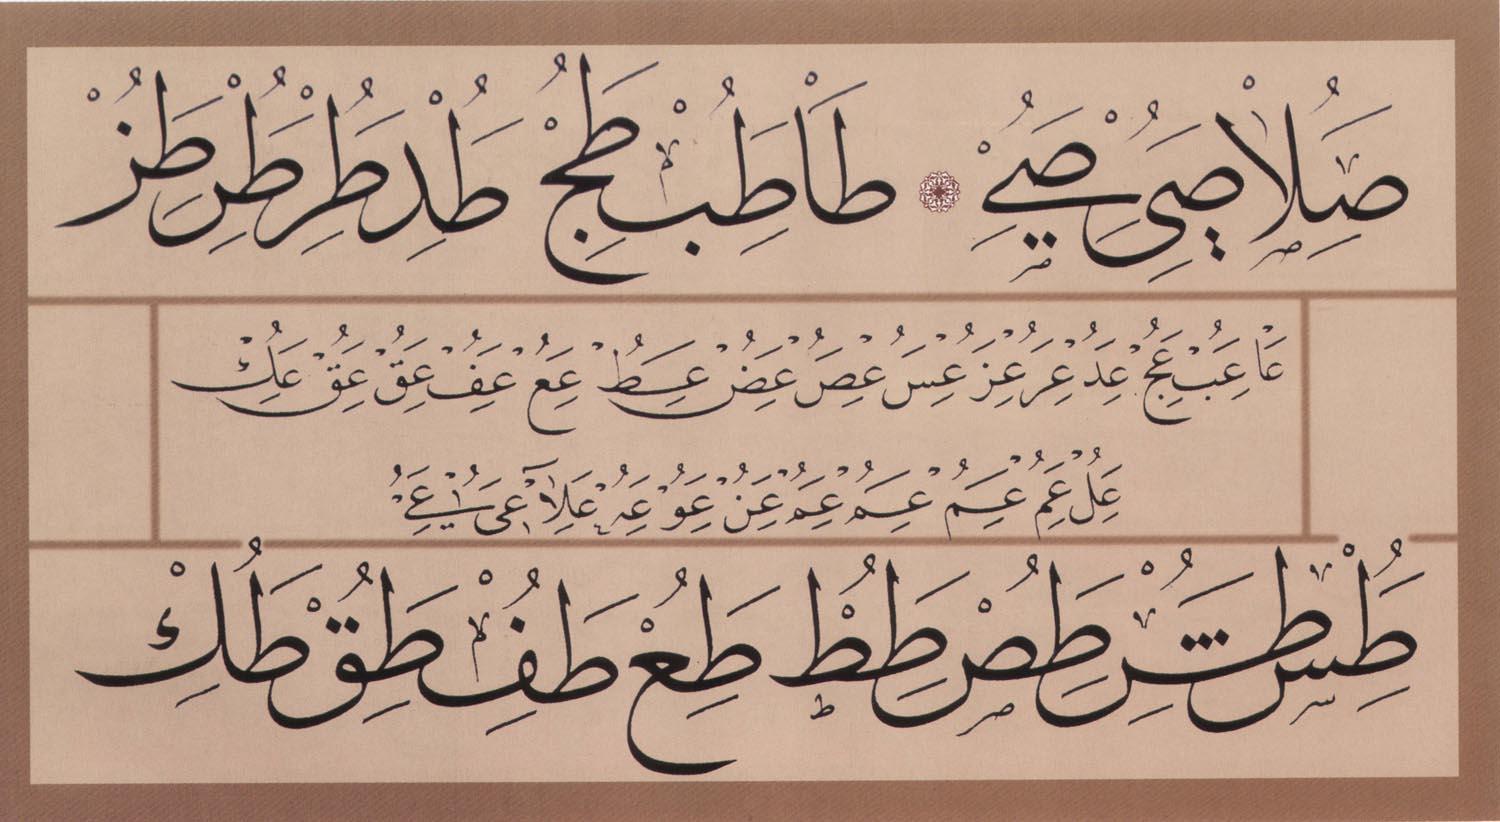 صَلِاْ صَىِ صَےِ طَا طِبُ طِجُ طَدِ طَرِ طِرُ طِزُ
عَا عَبُ عِجُ عَدِ عَرِ عِزُ عِسُ عِصُ عِضُ عِطُ عِعُ عِفُ عِقُ عِقُ عَكِ
عِلُ عِمُ عِمُ عِمُ عِمُ عِنُ عِوُ عِهُ عَلِا عَى عَےِ
طِسُ طَشِ طِصُ طِطُ طِعُ طَفِ طِقُ طَكِ